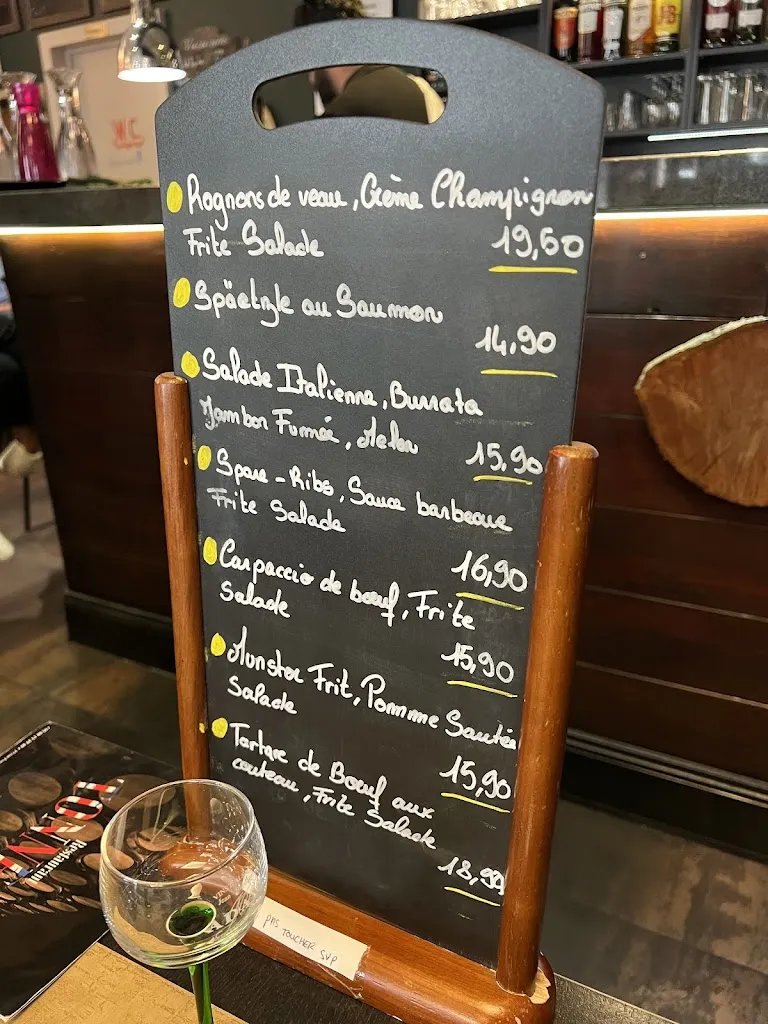 W.C
Rognons de veau, Crème Champignon
Frite Salade 19,60
Späetzle au Saumon
14,90
Salade Italienne, Burrata
Jambon Fumée, Melon 15,90
Spare-Ribs, Sauce barbecue
Frite Salade
16,90
Carpaccio de bœuf, Frite
Salade
15,90
Munster Frit, Pomme Sautée
Salade
15,90
Tartare de Bœuf aux
couteau, Frite Salade
18,90
PAS TOUCHER SVP
Restaurant
J&B